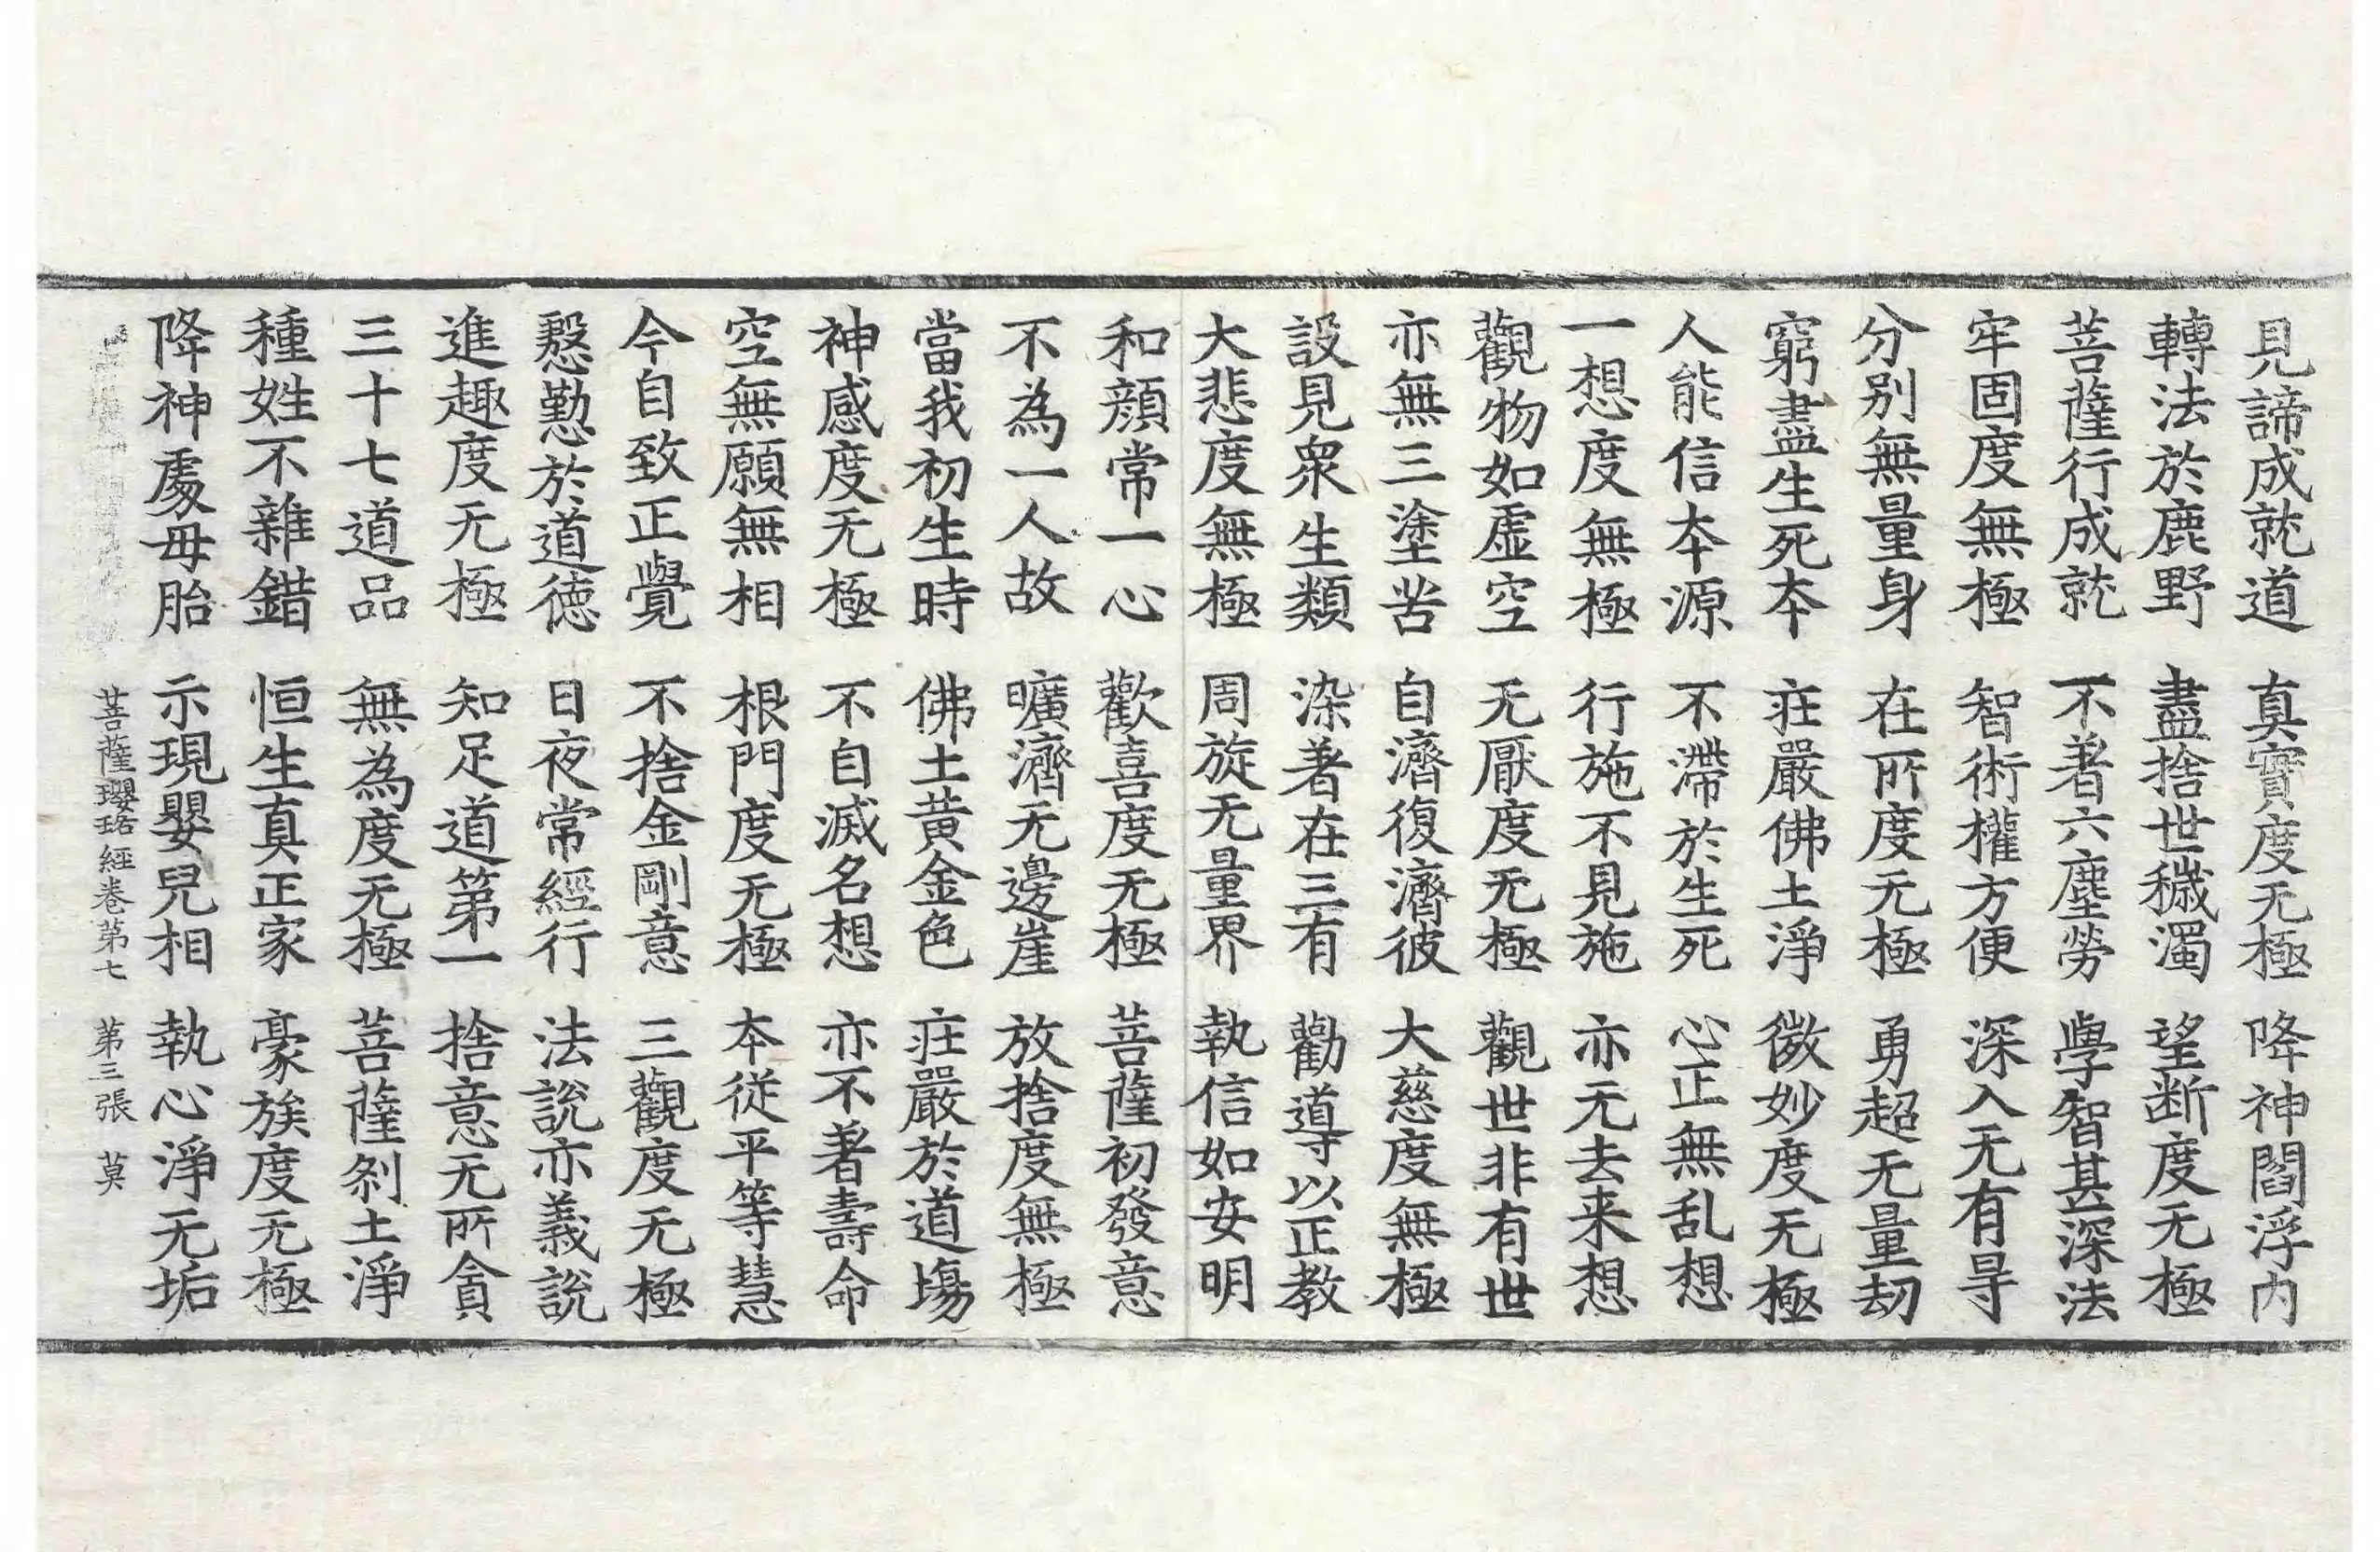 見諦成就道 真實度无極 降神閻浮內
轉法於鹿野 盡捨世穢濁 望断度无極
菩薩行成就 不著六塵勞 學智甚深法
牢固度無極 智術權方便 深入无有㝵
分别無量身 在所度无極 勇超无量劫
窮盡生死本 莊嚴佛土淨 微妙度无極
人能信本源 不滯於生死 心正無乱想
一想度無極 行施不見施 亦无去来想
觀物如虛空 无厭度无極 觀世非有世
亦無三塗苦 自濟復濟彼 大慈度無極
設見衆生類 染著在三有 勸導以正教
大悲度無極 周旋无量界 執信如安明
和顔常一心 歡喜度无極 菩薩初發意
不為一人故 曠濟无邊崖 放捨度無極
當我初生時 佛土黄金色 莊嚴於道場
神感度无極 不自滅名想 亦不著壽命
空無願無相 根門度无極 本従平等慧
今自致正覺 不捨金剛意 三觀度无極
慇懃於道德 日夜常經行 法說亦義說
進趣度无極 知足道第一 捨意无所貪
三十七道品 無為度无極 菩薩刹土淨
種姓不雜錯 恒生真正家 豪族度无極
降神處母胎 示現嬰兒相 執心淨无垢
菩薩瓔珞經卷第七 第三張 莫